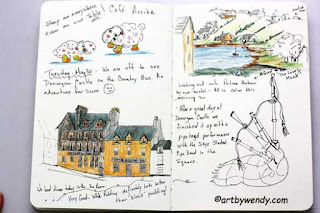 Sheep are everywhere
Even on our table! Café Arriba
Tuesday, May 30 We are off to see
Dunvegan Castle on the Country Bus. An
adventure for sure.
We had dinner today in the
Very Good. White Pudding definitely better
than "black" pudding!
Looking out onto Portree Harbour
by our hostel. All is calm this
morning
After a great day at
Dunvegan Castle we
finished it up with a
pipe band performance
with the Skye
Pipe Band in the
Square.
©artbywendy.com